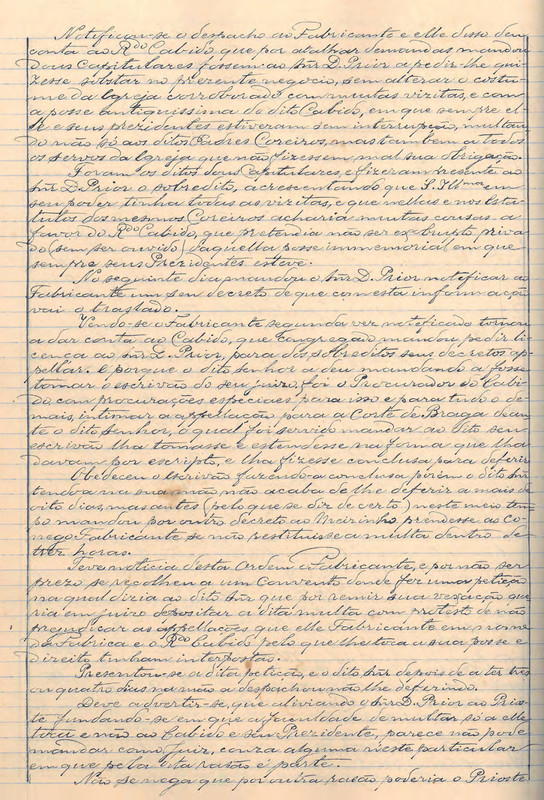 Notificou-se o despacho ao Fabricante e elle disso deu
conta ao Rdo Cabido, que por atalhar demandas mandou
Dous Capitulares fossem ao Snr D. Prior a pedir-lhe qui-
zesse sobstar no prezente negocio, sem alterar o costu-
me da Igreja corroborado com muitas vizitas, e com
a posse antiquissima do dito Cabido, em que sempre el-
le e seus prezidentes estiveram sem interrupção, multan-
do não só aos ditos Padres Coreiros, mas tambem a todos
os servos da Igreja que não fizessem mal sua obrigação.
Foram os ditos dous Capitulares, e fizeram prezente ao
Snr D. Prior o sobredito, acrescentando que S. Illma em
seu poder tinha todas as vizitas, e que nellas e nos Esta-
tutos dos mesmos Coreiros acharia muitas cousas a
favor do Rdo Cabido, que pretendia não ser exbulhado priva-
do (sem ser ouvido) daquella posse immemorial em que
sempre seus Prezidentes esteve.
No seguinte dia mandou o Snr D. Prior notificar ao
Fabricante um seu decreto de que com esta informação
vai o traslado.
Vendo-se o Fabricante segunda vez notificado tornou
a dar conta ao Cabido, que Congregado mandou pedir li-
cença ao Snr D. Prior, para dos sobreditos seus decretos ap-
pellar. E porque o dito senhor a deu mandando a fosse
tomar o escrivão do seu juizo, foi o Procurador do Cabi-
do com procurações especiaes para isso e para tudo o de-
mais, intimar a appellação para a Corte de Braga dean-
te o dito senhor, o qual foi servido mandar ao dito seu
escrivão lha tomasse e estendesse na forma que lha
davam por escripto, e lha fizesse conclusa para deferir.
Obedeceu o escrivão fazendo-a conclusa porem o dito Snr
tendo-a na sua mão não acaba de lhe deferir a mais de
oito dias, mas antes (pelo que se diz de certo) neste meio tem-
po mandou por outro decreto ao Meirinho prendesse ao Co-
nego Fabricante se não restituisse a multa dentro de
trez horas.
Teve noticia desta Ordem o Fabricante, e por não ser
prezo se recolheu a um Convento donde fez uma petição
na qual dizia ao dito Snr que por remir sua vexação que-
ria em juizo depositar a dita multa com protesto de não
prejudicar as appellações que elle Fabricante em nome
da Fabrica e o Rdo Cabido pelo que lhe toca a sua posse e
direito tinham interposto.
Presentou-se a dita petição, e o dito Snr depois de a ter tres
ou quatro dias na mão a despachou não lhe deferindo.
Deve advertir-se, que aliviando o Snr D. Prior ao Prios-
te fundando-se em que a faculdade de multar só a elle
toca e não ao Cabido e seu Prezidente, parece não pode
mandar como Juiz, couza alguma neste particular
em que pela dita rasão é parte.
Não se nega que por outra rasão poderia o Prioste